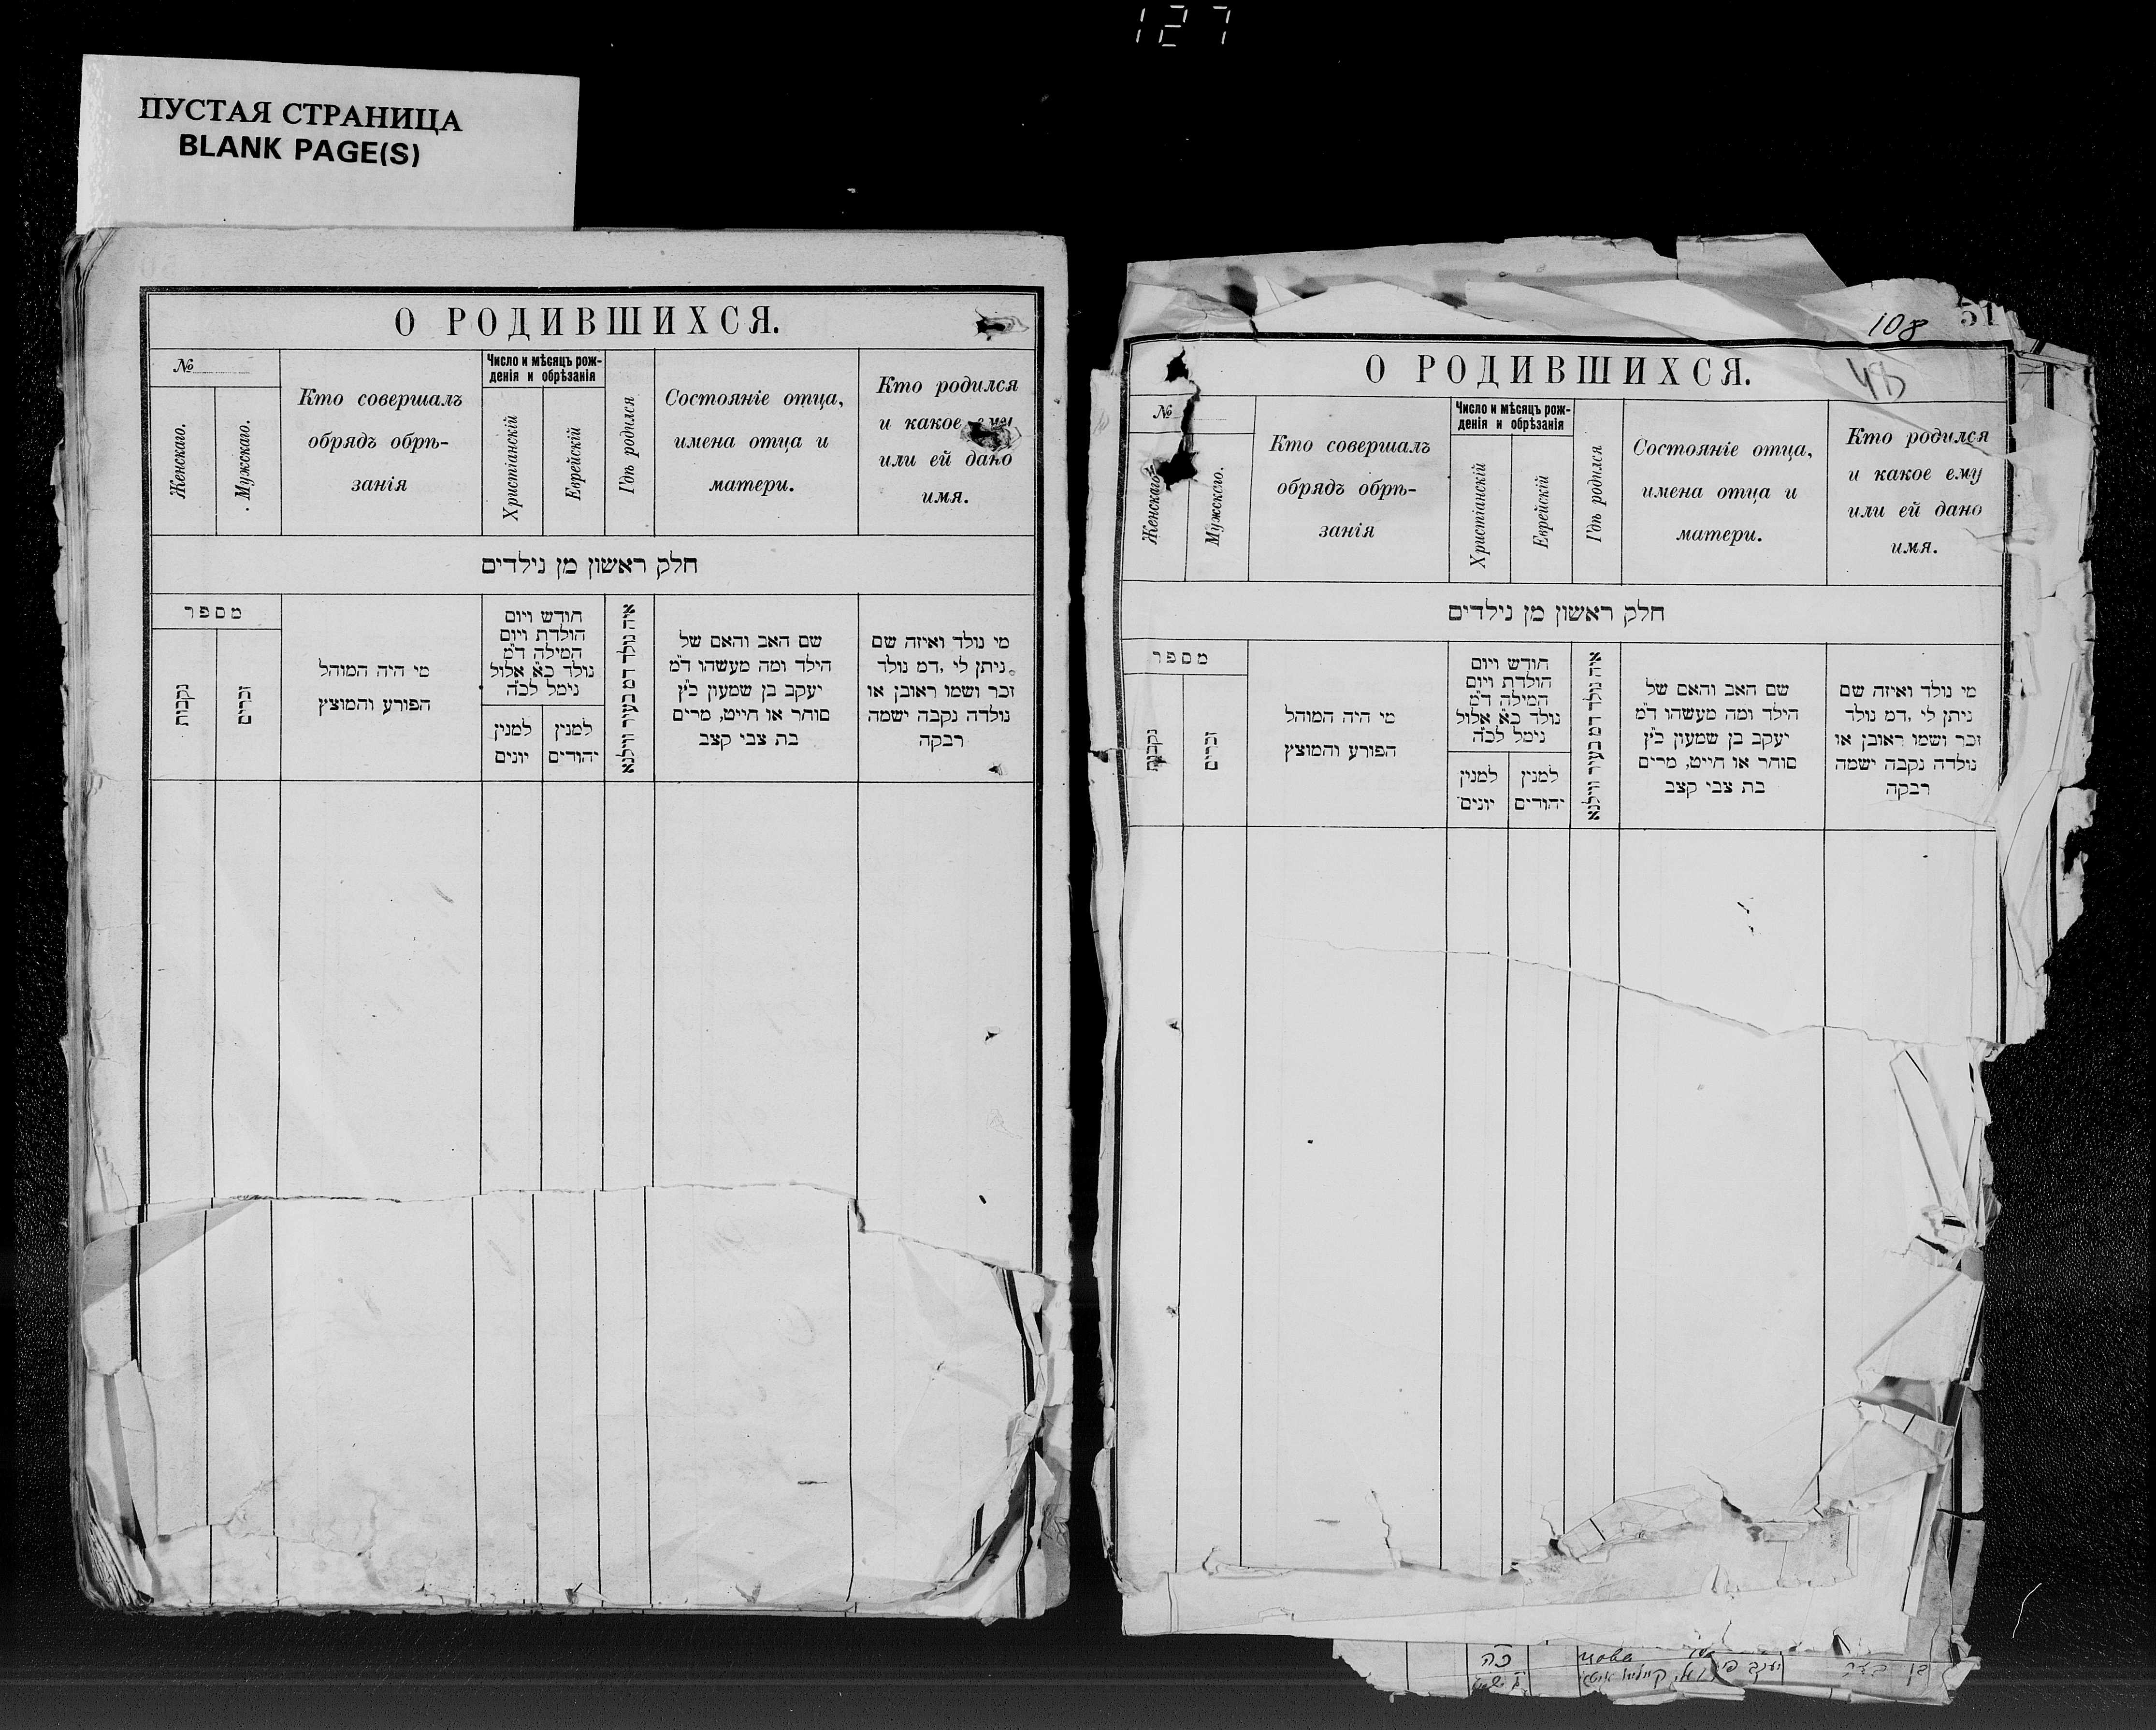 127
ПУСТАЯ СТРАНИЦА
BLANK PAGE(S)
О РОДИВШИХСЯ.
№
Женскаго.
Мужскаго.
Кто совершалъ
обрядъ обрѣ-
занія
Число и мѣсяцъ рож-
денія и обрѣзанія
Христіанскій
Еврейскій
Гдѣ родился
Состояніе отца,
имена отца и
матери.
Кто родился
и какое ему
или ей дано
имя.
חלק ראשון מן נילדים
מספר
נקבות
זכרים
מי היה המוהל
הפורע והמוצץ
חודש ויום
הולדת ויום
המילה ד״מ
נולד כ״א אלול
נימל לכ״ה
למנין
יונים
למנין
יהודים
איה נולד דמ בעיר ווילנא
שם האב והאם של
הילד ומה מעשהו ד״מ
יעקב בן שמעון כ״ץ
סוחר או חייט, מרים
בת צבי קצב
מי נולד ואיזה שם
ניתן לי ,דמ נולד
זכר ושמו ראובן או
נולדה נקבה ישמה
רבקה
51
108
О РОДИВШИХСЯ.
№
Женскаго
Мужскаго.
Кто совершалъ
обрядъ обрѣ-
занія
Число и мѣсяцъ рож-
денія и обрѣзанія
Христіанскій
Еврейскій
Гдѣ родился
Состояніе отца,
имена отца и
матери.
Кто родился
и какое ему
или ей дано
имя.
חלק ראשון מן נילדים
מספר
נקבות
זכרים
מי היה המוהל
הפורע והמוצץ
חודש ויום
הולדת ויום
המילה ד״מ
נולד כ״א אלול
נימל לכ״ה
למנין
יונים
למנין
יהודים
איה נולד דמ בעיר ווילנא
שם האב והאם של
הילד ומה מעשהו ד״מ
יעקב בן שמעון כ״ץ
סוחר או חייט, מרים
בת צבי קצב
מי נולד ואיזה שם
ניתן לי ,דמ נולד
זכר ושמו ראובן או
נולדה נקבה ישמה
רבקה